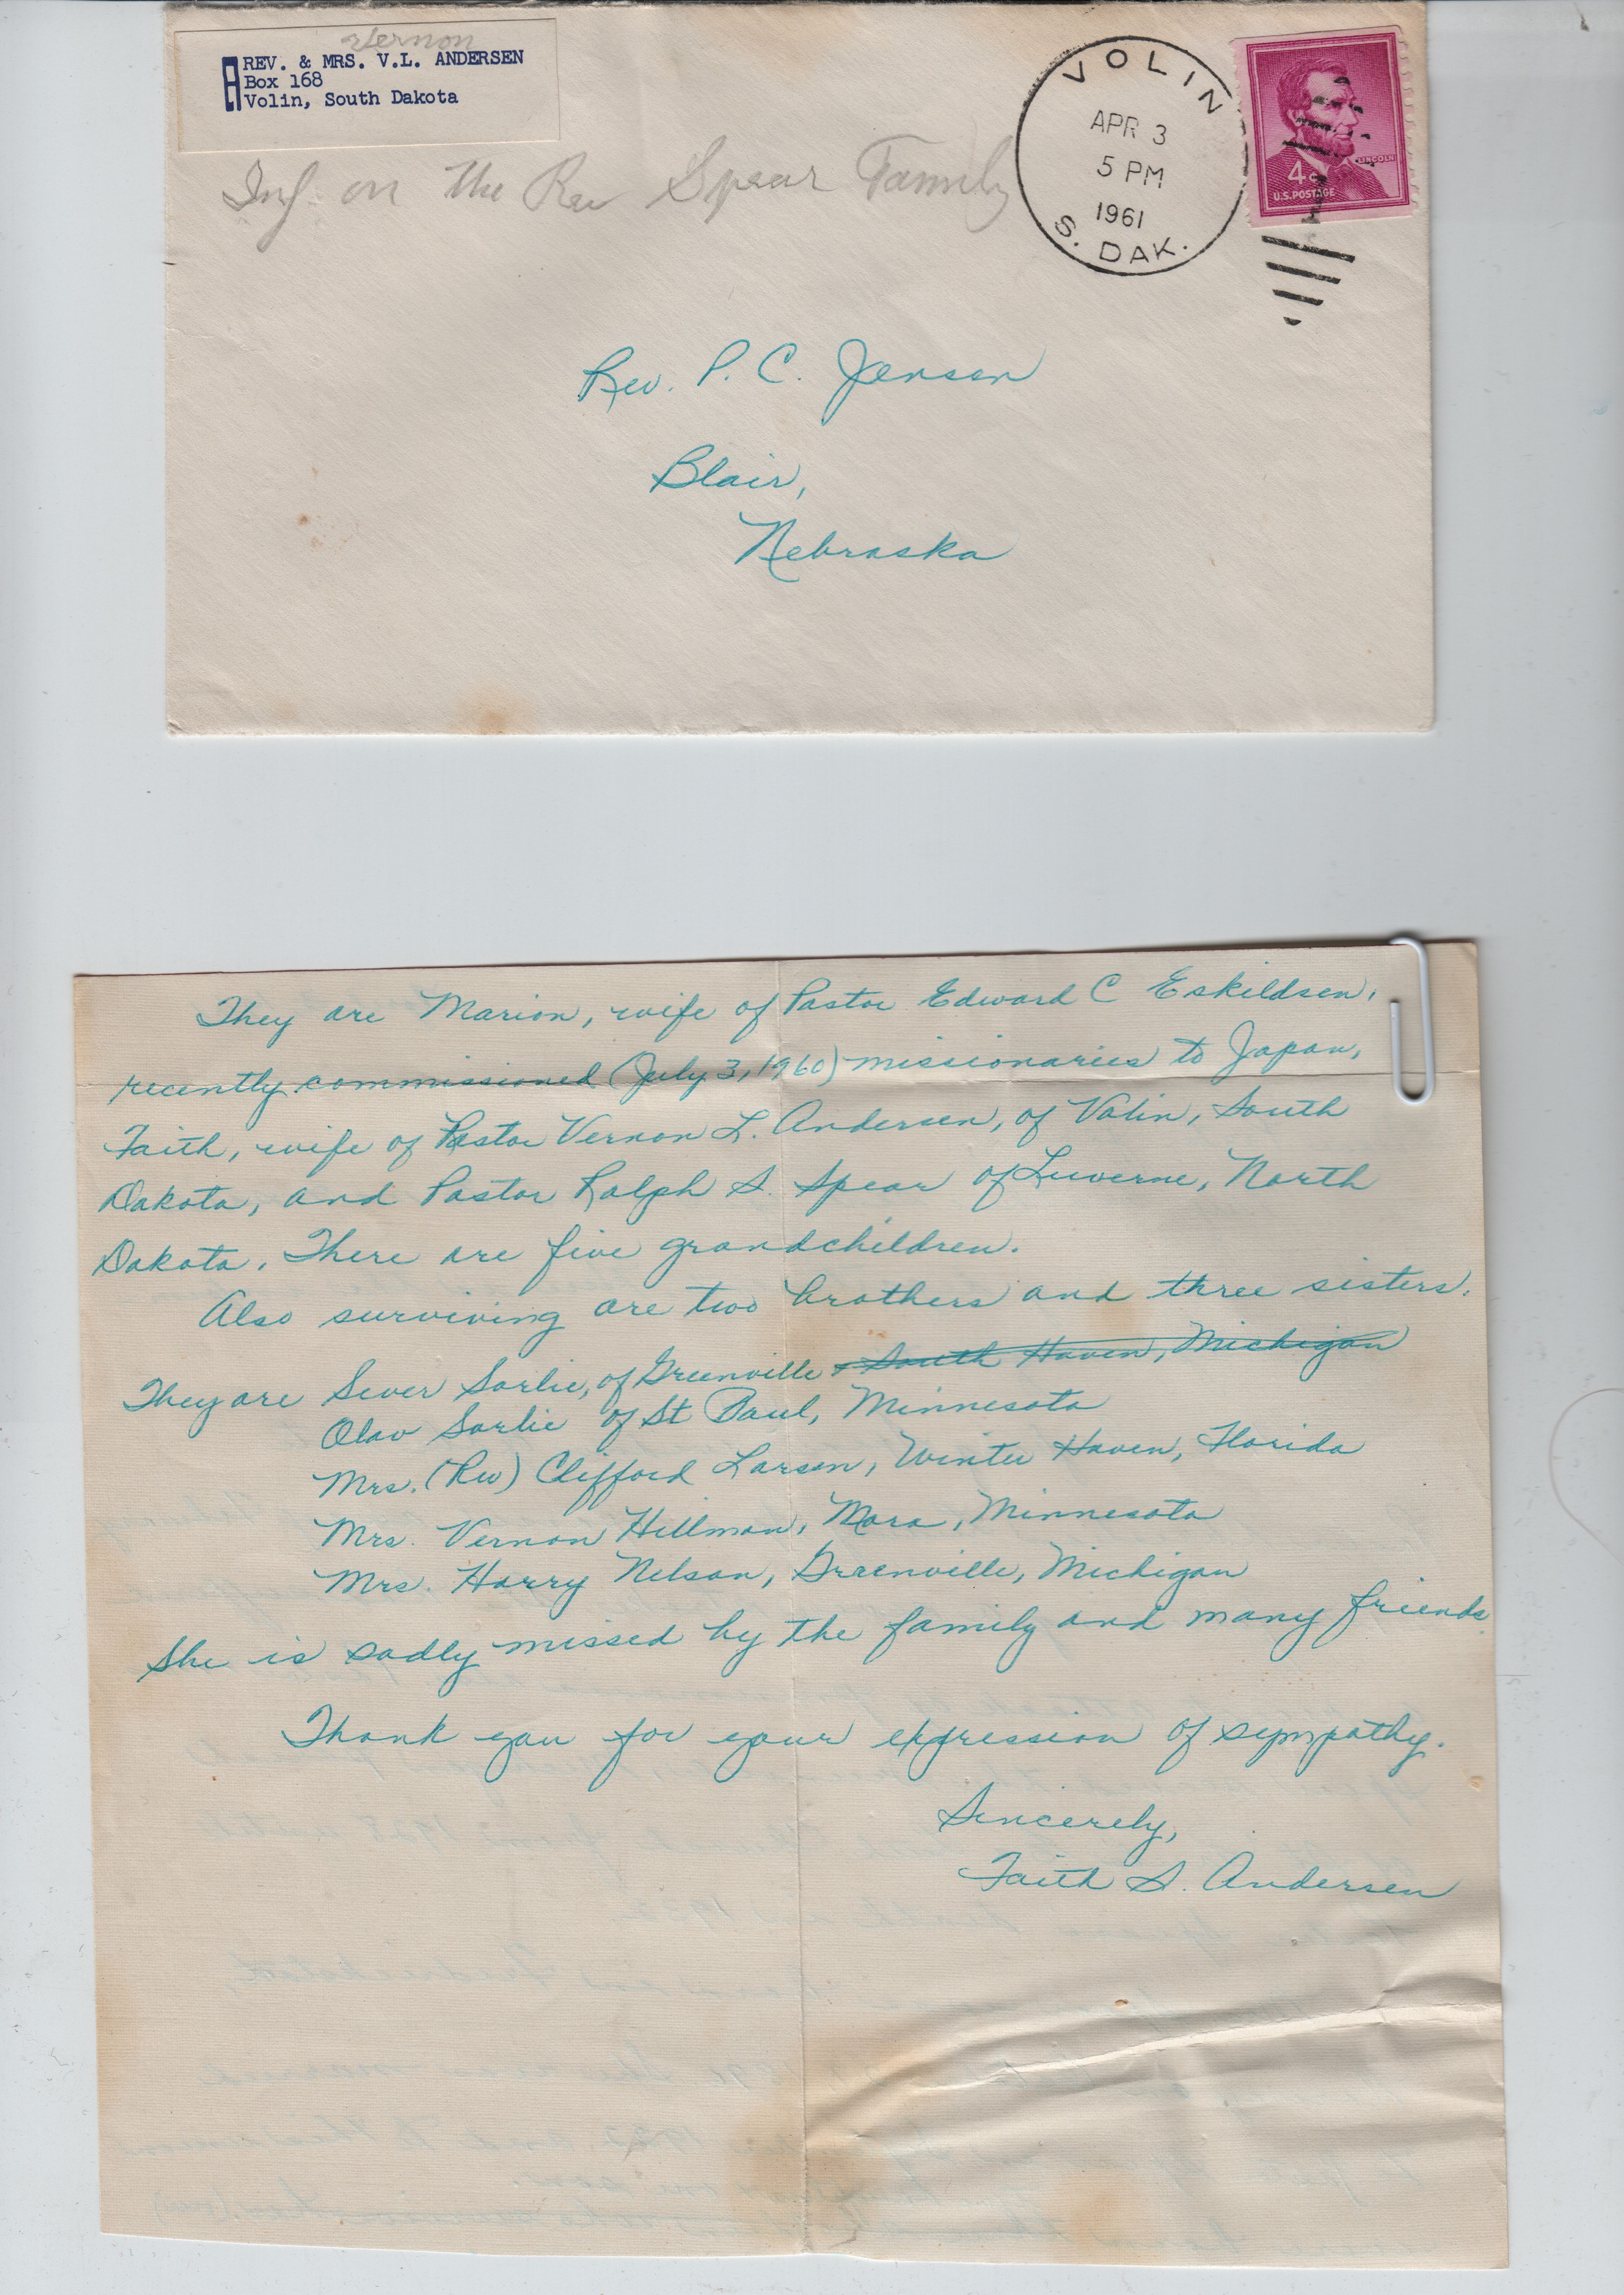 Vernon
REV. & MRS. V.L. ANDERSEN
Box 168
Volin, South Dakota
A
VOLIN
APR 3
5 PM
1961
S. DAK.
LINCOLN
4c
U.S. POSTAGE
Inf on the Rev Spear Family
Rev. P. C. Jensen
Blair,
Nebraska
They are Marion, wife of Pastor Edward C Eskildsen,
recently commissioned (July 3, 1960) missionaries to Japan,
Faith, wife of Pastor Vernon L. Andersen, of Volin, South
Dakota, and Pastor Ralph S. Spear of Luverne, North
Dakota. There are five grandchildren.
Also surviving are two brothers and three sisters.
They are Sever Sorlie, of Greenville & South Haven, Michigan
Olav Sorlie of St Paul, Minnesota
Mrs. (Rev) Clifford Larsen, Winter Haven, Florida
Mrs. Vernon Hillman, Mora, Minnesota
Mrs. Harry Nelson, Greenville, Michigan
She is sadly missed by the family and many friends.
Thank you for your expression of sympathy.
Sincerely,
Faith S. Andersen